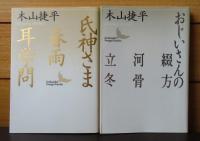 木山捷平
氏神さま
春雨
耳学問
木山捷平
おじいさんの
綴方
河骨
立冬